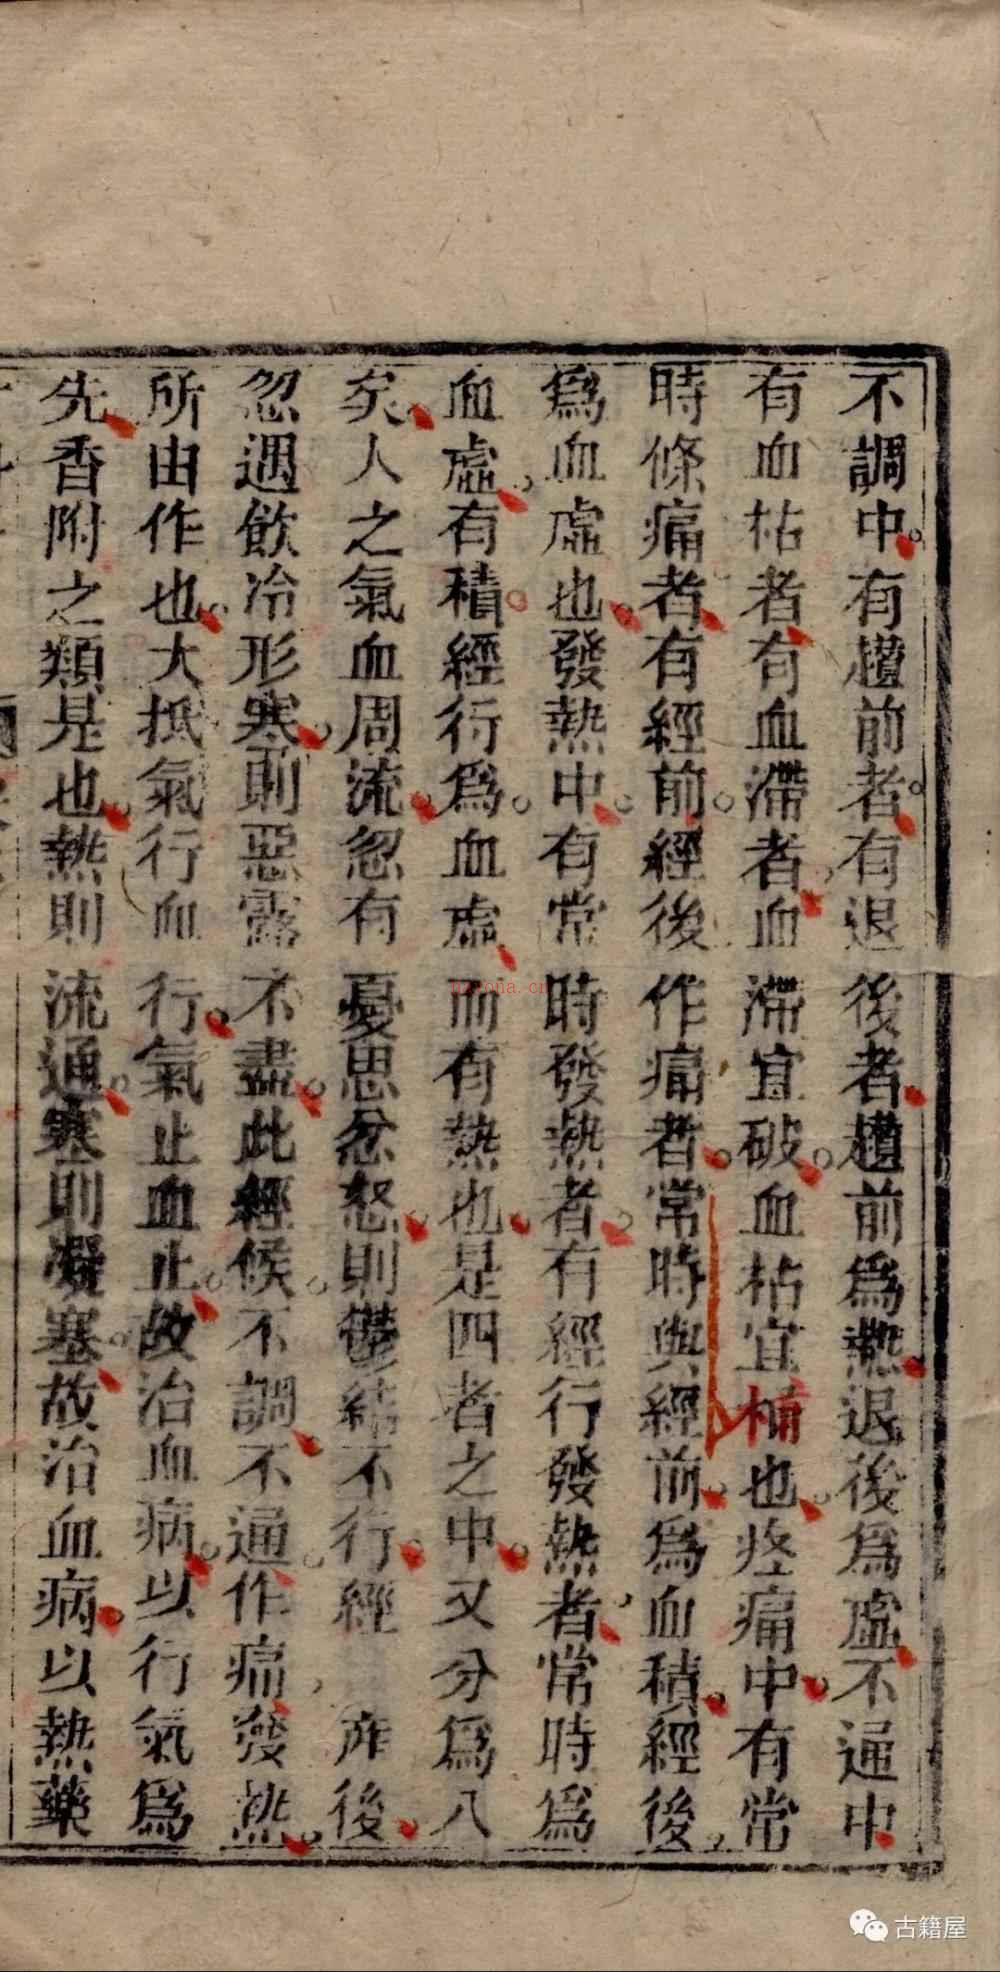 不調中有趲前者有退後者趲前爲熱退後爲虛不通中
有血枯者有血滯者血滯宜破血枯宜補也疼痛中有常
時條痛者有經前經後作痛者常時與經前爲血積經後
爲血虛也發熱中有常時發熱者有經行發熱者常時爲
血虛有積經行爲血虛而有熱也是四者之中又分爲八
矣人之氣血周流忽有憂思忿怒則鬱結不行經產後
忽遇飲冷形寒則惡露不盡此經候不調不通作痛發熱
所由作也大抵氣行血行氣止血止故治血病以行氣爲
先香附之類是也熱則流通寒則凝塞故治血病以熱藥
nayona.cn
古籍屋